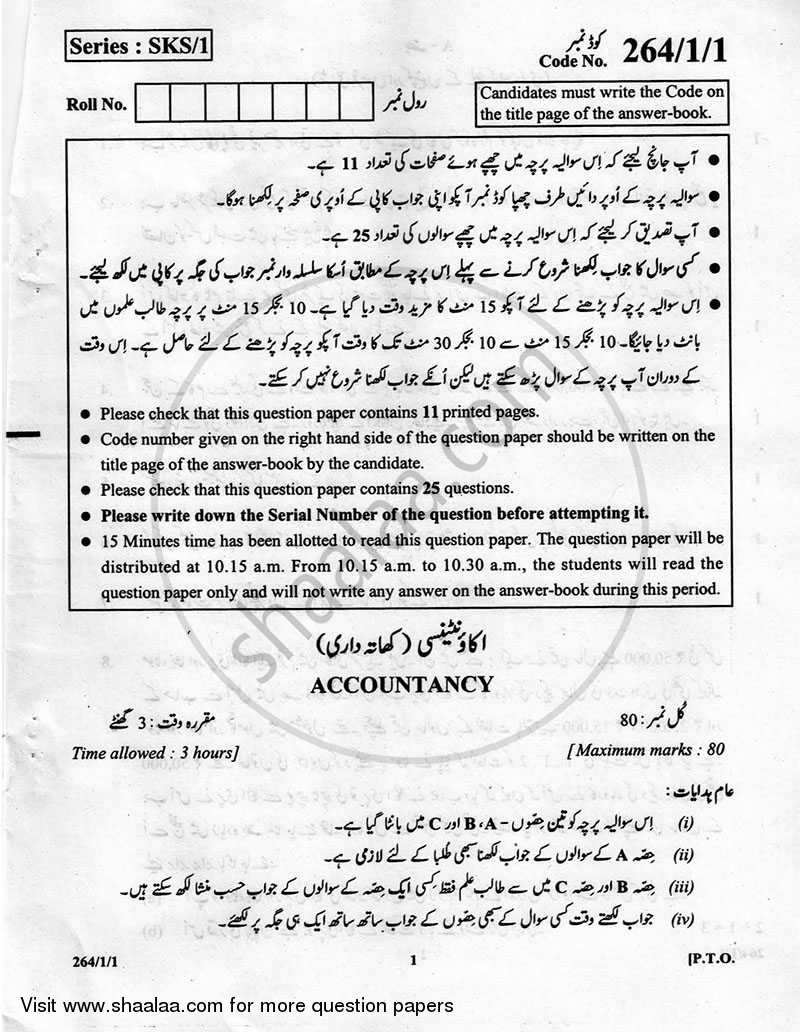 Series : SKS/1
کوڈ نمبر
Code No. 264/1/1
Roll No.
رول نمبر
Candidates must write the Code on
the title page of the answer-book.
● آپ جانچ لیجئے کہ اِس سوالیہ پرچہ میں چھپے ہوئے صفحات کی تعداد 11 ہے۔
● سوالیہ پرچہ کے اُوپر دائیں طرف چھپا کوڈ نمبر آپکو اپنی جواب کاپی کے اُوپری صفحہ پر لِکھنا ہوگا۔
● آپ تصدیق کر لیجئے کہ اِس سوالیہ پرچہ میں چھپے سوالوں کی تعداد 25 ہے۔
● کسی سوال کا جواب لِکھنا شروع کرنے سے پہلے اِس پرچہ کے مطابق اُسکا سلسلہ وار نمبر جواب کی جگہ پر کاپی میں لکھ لیجئے۔
● اِس سوالیہ پرچہ کو پڑھنے کے لئے آپکو 15 منٹ کا مزید وقت دیا گیا ہے۔ 10 بجکر 15 منٹ پر پرچہ طالب علموں میں
بانٹ دیا جائیگا۔ 10 بجکر 15 منٹ سے 10 بجکر 30 منٹ تک کا وقت آپکو پرچہ کو پڑھنے کے لئے حاصل ہے۔ اِس وقت
کے دوران آپ پرچہ کے سوال پڑھ سکتے ہیں لیکن اُنکے جواب لکھنا شروع نہیں کر سکتے۔
● Please check that this question paper contains 11 printed pages.
● Code number given on the right hand side of the question paper should be written on the
title page of the answer-book by the candidate.
● Please check that this question paper contains 25 questions.
● Please write down the Serial Number of the question before attempting it.
● 15 Minutes time has been allotted to read this question paper. The question paper will be
distributed at 10.15 a.m. From 10.15 a.m. to 10.30 a.m., the students will read the
question paper only and will not write any answer on the answer-book during this period.
shaalaa.com
اکاؤنٹینسی (کھاتہ داری)
ACCOUNTANCY
کُل نمبر: 80
مقررہ وقت: 3 گھنٹے
Time allowed : 3 hours]
[Maximum marks : 80
عام ہدایات:
(i) اِس سوالیہ پرچہ کو تین حِصّوں - A، B اور C میں بانٹا گیا ہے۔
(ii) حِصّہ A کے سوالوں کے جواب لکھنا سبھی طلبا کے لئے لازمی ہے۔
(iii) حِصّہ B اور حِصّہ C میں سے طالب علم فقط کِسی ایک حِصّہ کے سوالوں کے جواب حسب منشا لکھ سکتے ہیں۔
(iv) جواب لکھتے وقت کسی سوال کے سبھی حِصّوں کے جواب ساتھ ساتھ ایک ہی جگہ پر لکھئے۔
264/1/1
1
[P.T.O.
Visit www.shaalaa.com for more question papers